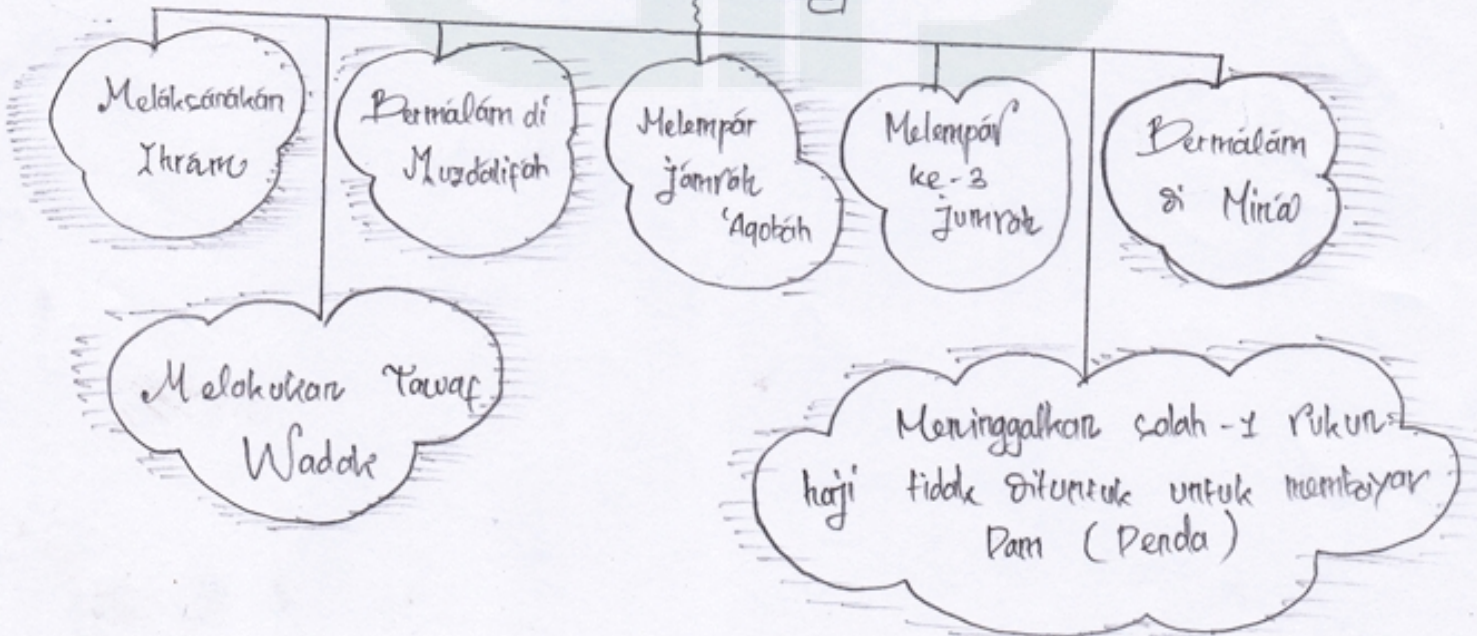 Melaksanakan
Ihram
Bermalam di
Muzdalifah
Melempar
jamrah
'Aqobah
Melempar
ke-3
jumrah
Bermalam
di Mina
Melakukan Tawaf
Wadak
Meninggalkan salah-1 rukun
haji tidak dituntuk untuk membayar
Dam (Denda)